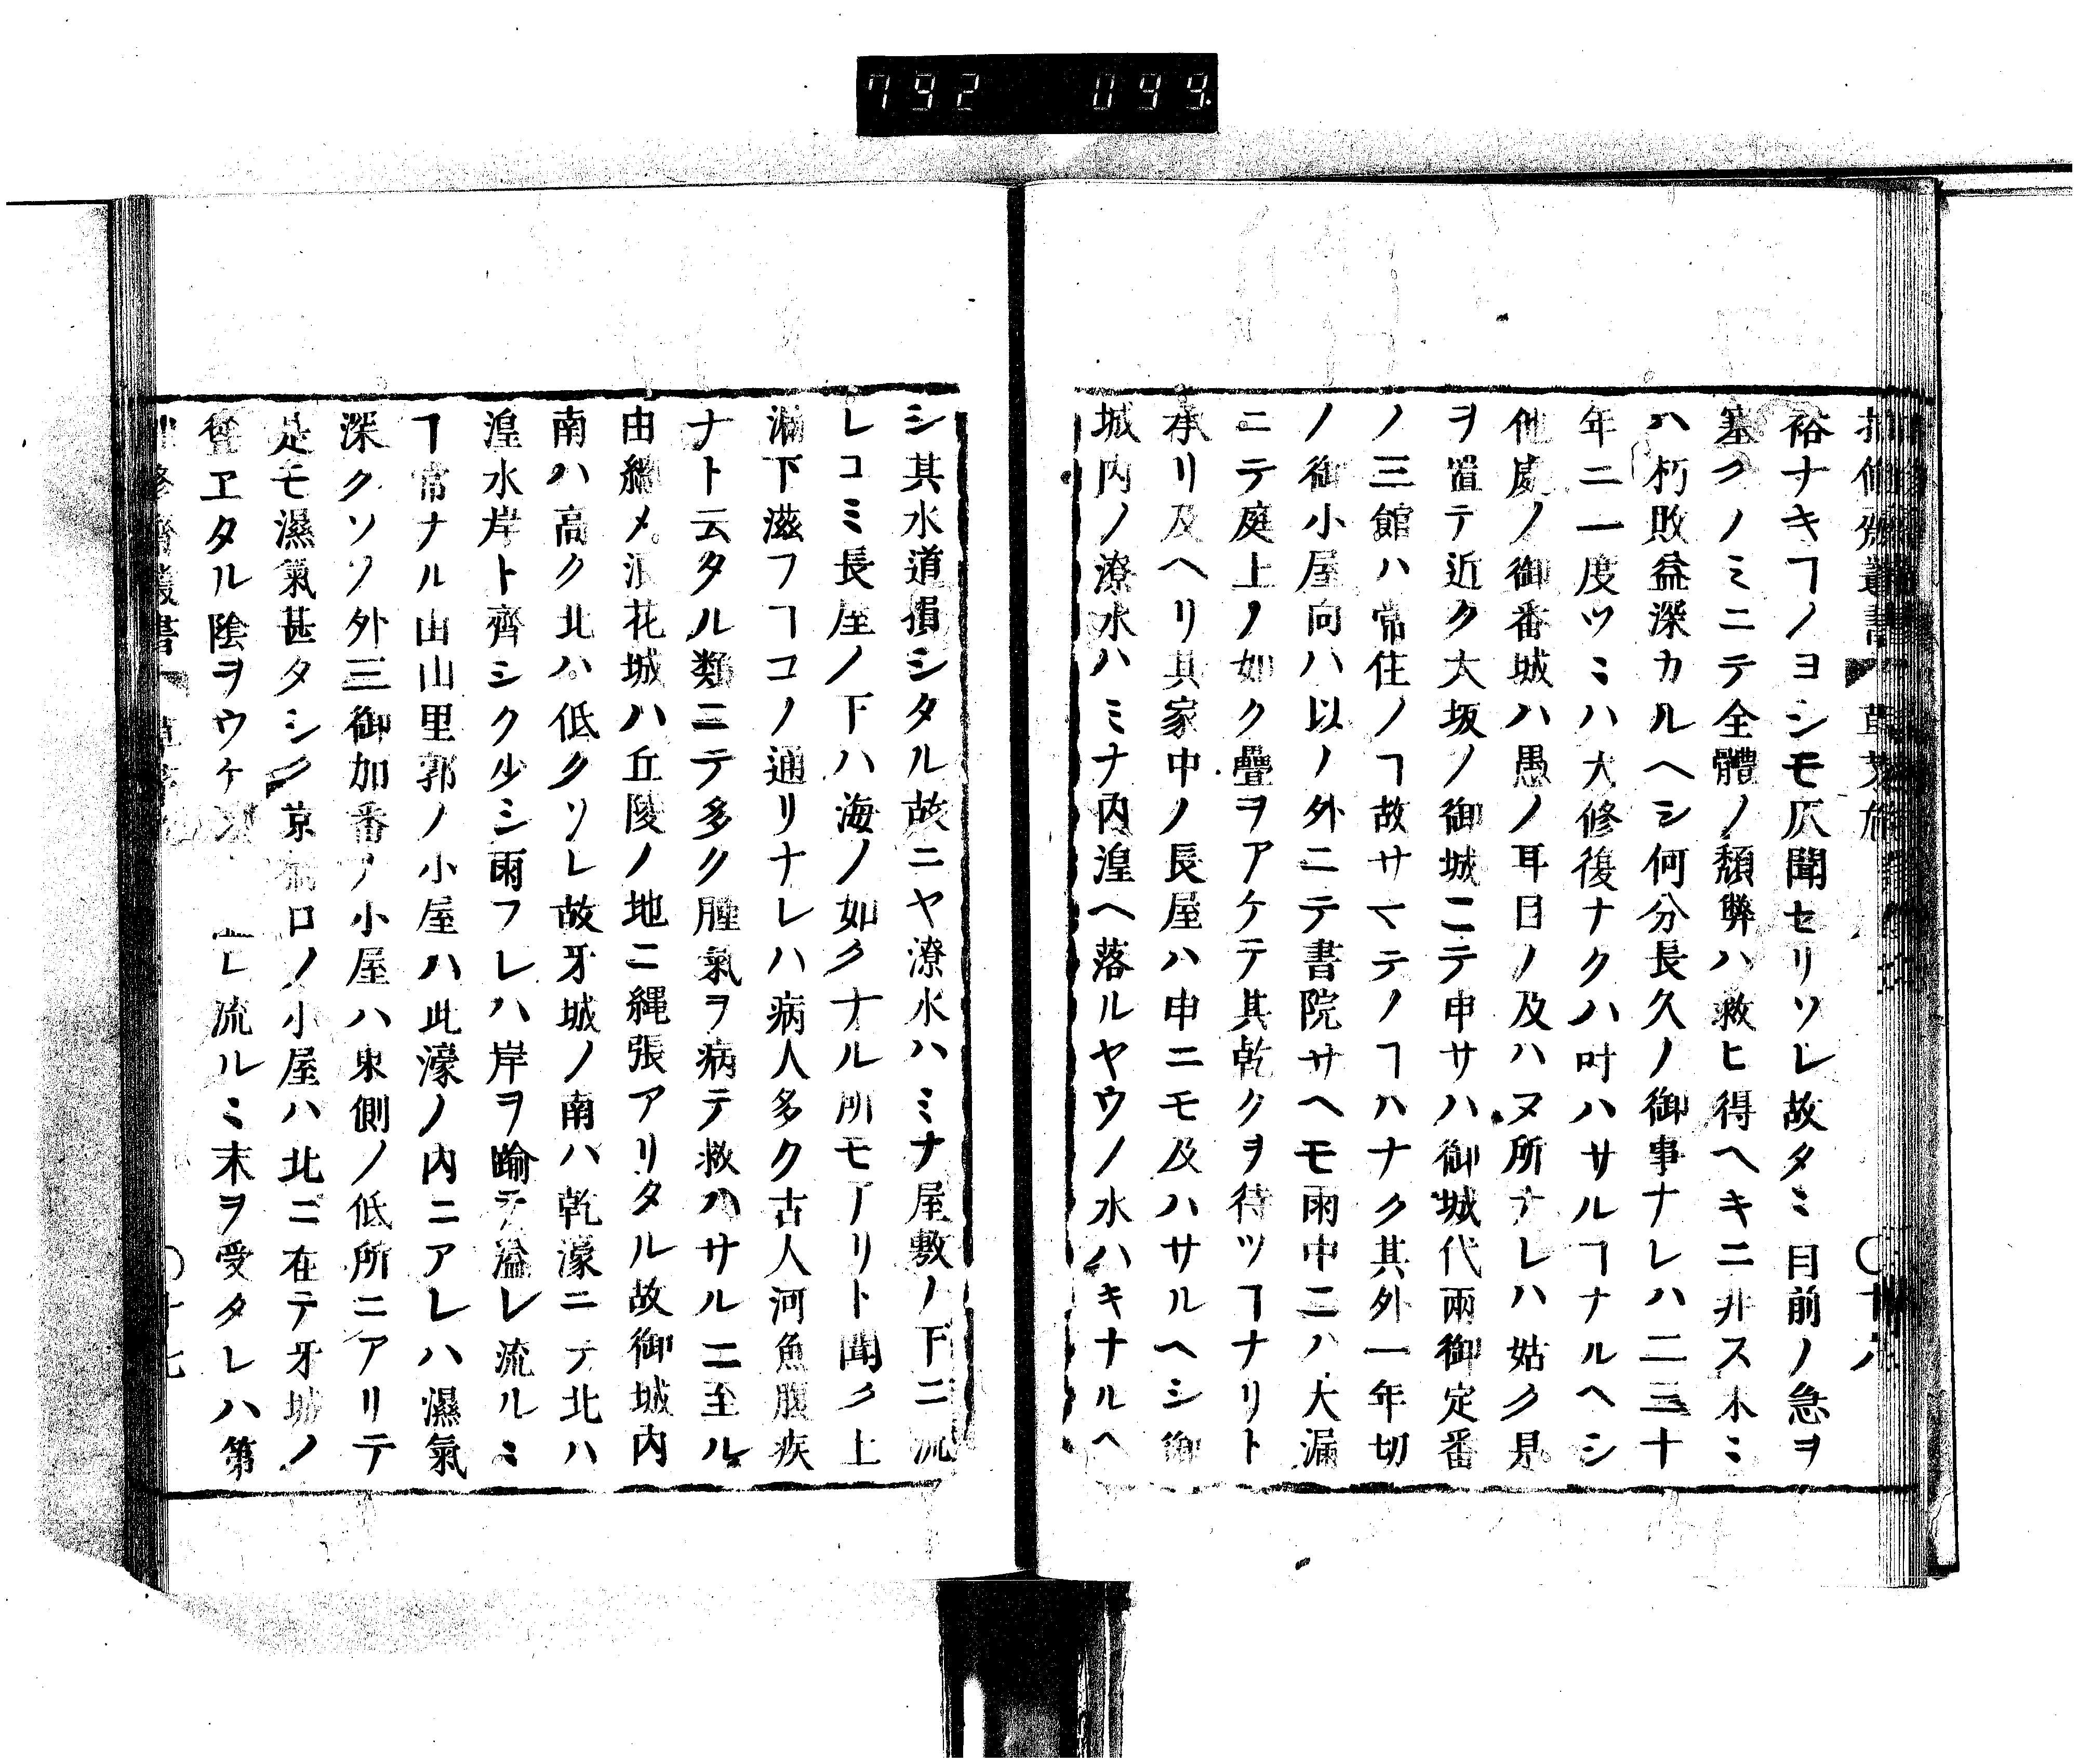 792 099.
裕ナキヿノヨシモ仄聞セリソレ故タミ目前ノ急ヲ
塞クノミニテ全體ノ頽弊ハ救ヒ得ヘキニ非ス木ミ
ハ朽敗益深カルヘシ何分長久ノ御事ナレハ二三十
年ニ一度ツミハ大修復ナクハ叶ハサルヿナルヘシ
他處ノ御番城ハ愚ノ耳目ノ及ハヌ所ナレハ姑ク是
ヲ置テ近ク大坂ノ御城ニテ申サハ御城代兩御定番
ノ三館ハ常住ノヿ故サマテノヿハナク其外一年切
ノ御小屋向ハ以ノ外ニテ書院サヘモ雨中ニハ大漏
ニテ庭上ノ如ク疊ヲアケテ其乾クヲ待ツヿナリト
承リ及ヘリ其家中ノ長屋ハ申ニモ及ハサルヘシ御
城内ノ潦水ハミナ内湟ヘ落ルヤウノ水ハキナルヘ
シ其水道損シタル故ニヤ潦水ハミナ屋敷ノ下ニ流
レコミ長屋ノ下ハ海ノ如クナル所モアリト聞ク上
漏下滋フヿコノ通リナレハ病人多ク古人河魚腹疾
ナト云タル類ニテ多ク腫氣ヲ病テ救ハサルニ至ル
由縄メ浪花城ハ丘陵ノ地ニ縄張アリタル故御城内
南ハ高ク北ハ低クソレ故牙城ノ南ハ乾濠ニテ北ハ
湟水岸ト齊シク少シ雨フレハ岸ヲ踰テ溢レ流ルミ
ヿ常ナル由山里郭ノ小屋ハ此濠ノ内ニアレハ濕氣
深クソノ外三御加番ノ小屋ハ東側ノ低所ニアリテ
是モ濕氣甚タシク京橋口ノ小屋ハ北ニ在テ牙城ノ
聳ヱタル陰ヲウケ レ流ルミ末ヲ受タレハ第